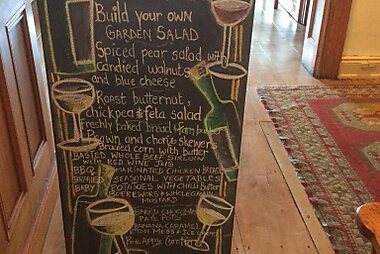 Build your own
GARDEN SALAD
Spiced pear salad with
candied walnuts
and blue cheese
Roast butternut,
chickpea & feta salad
Freshly baked bread & farm butter
Prawn and chorizo skewers
corn with butter
BASTED WHOLE BEEF SIRLOIN
WITH RED WINE JUS
BBQ MARINATED CHICKEN
SEASONAL VEGETABLES
BABY POTATOES WITH CHILLI Butter
BOEREWORS & WHOLEGRAIN
MUSTARD
BAKED CHOCOLATE
POTS
BANANA CARAMEL
ETON MESS & ICE